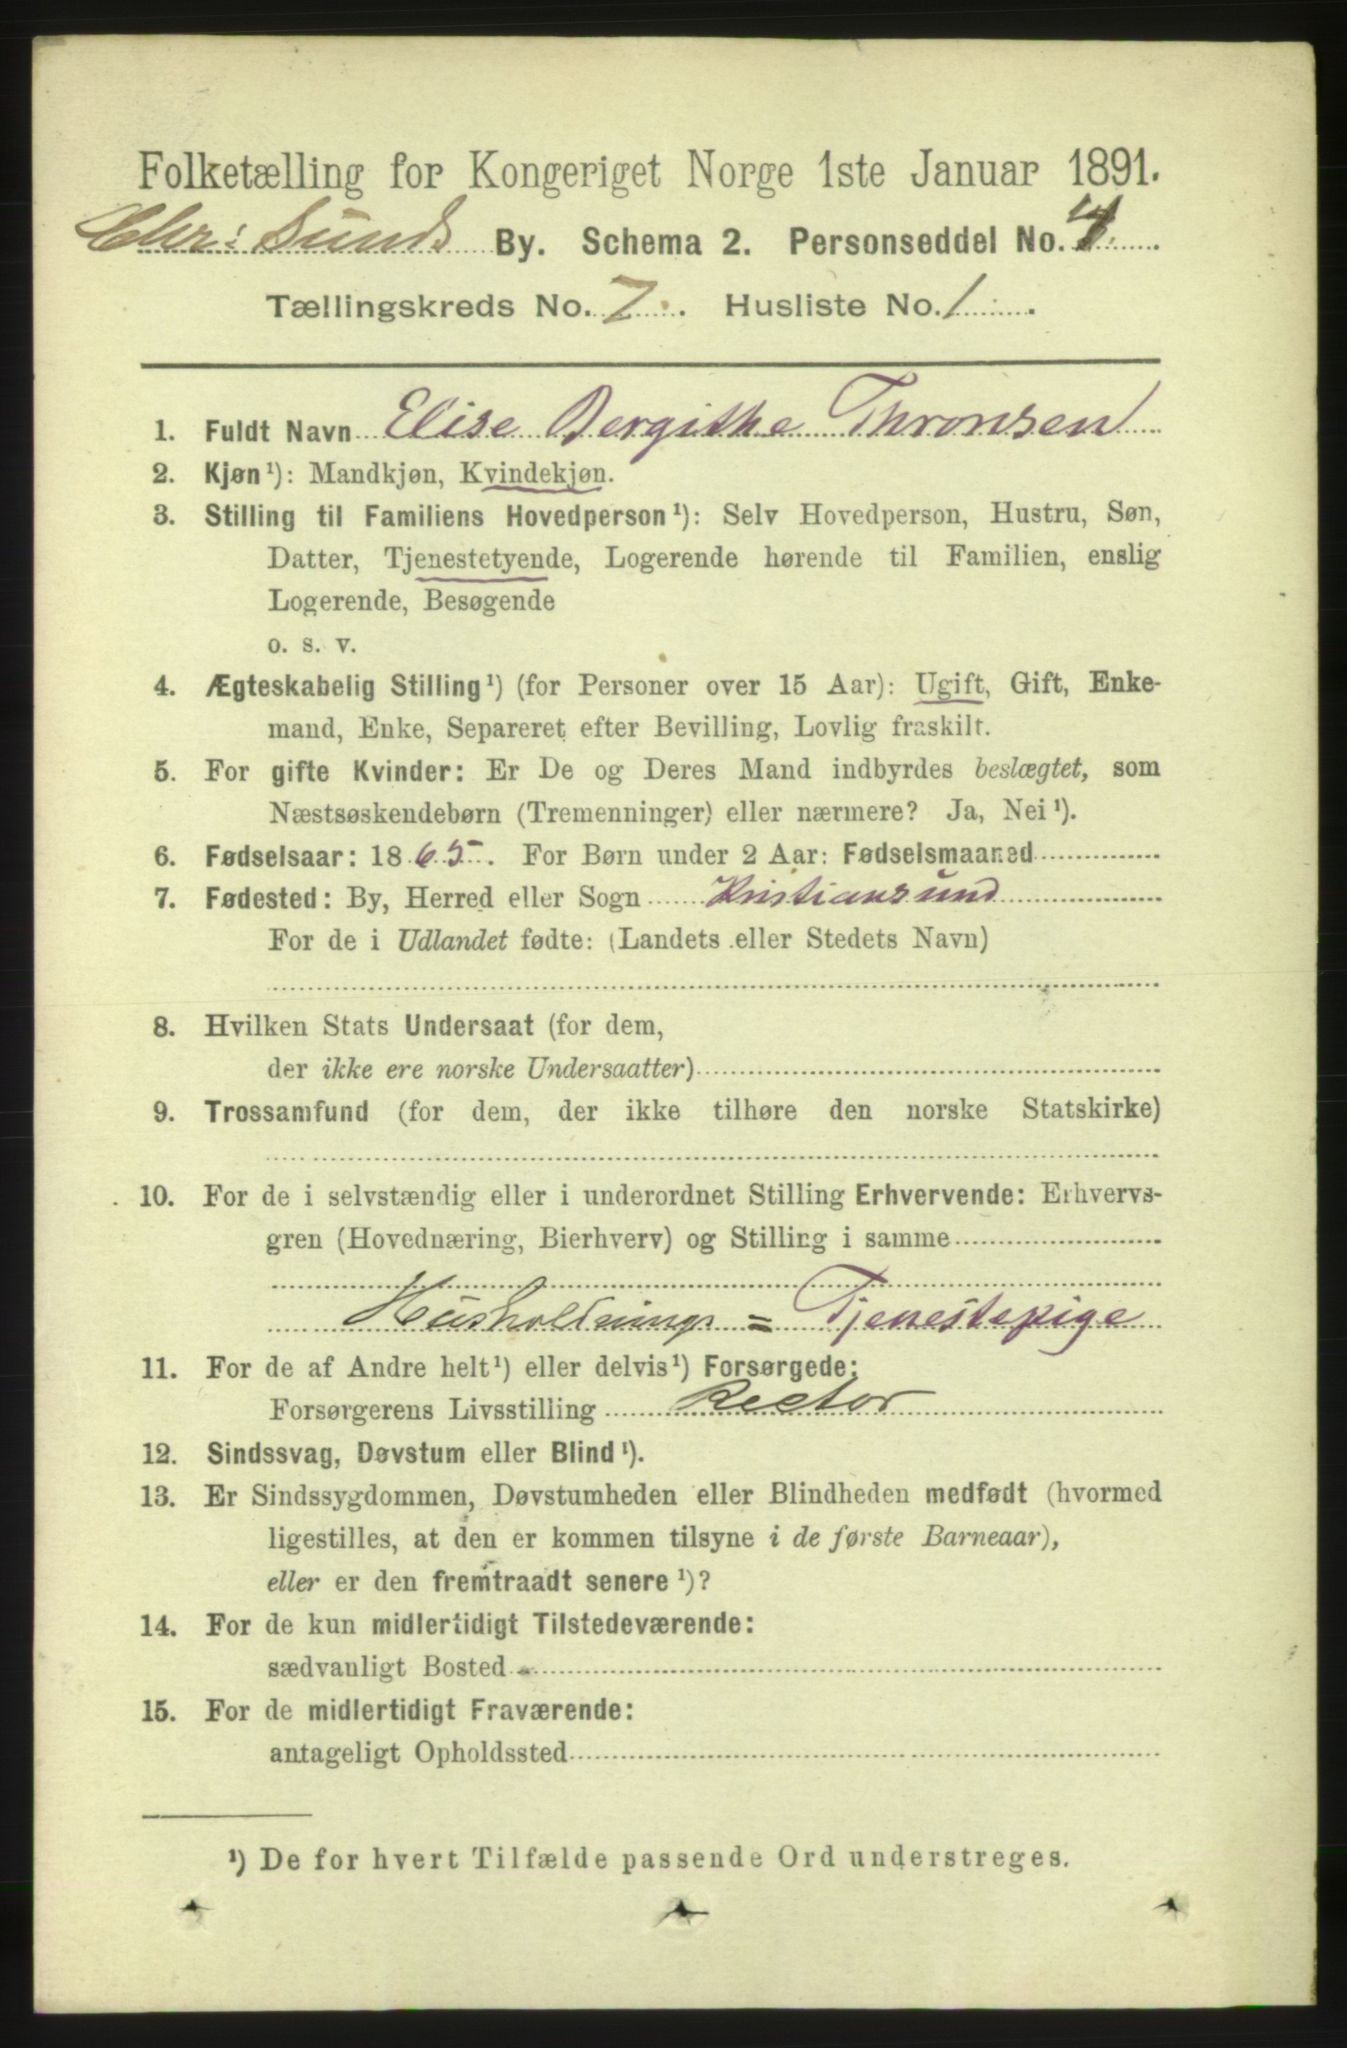 Folketælling for Kongeriget Norge 1ste Januar 1891.
Chr: Sunds By. Schema 2. Personseddel No. 4.
Tællingskreds No. 7. Husliste No. 1
1. Fuldt Navn Elise Bergithe Thronsen
2. Kjøn ¹): Mandkjøn, Kvindekjøn.
3. Stilling til Familiens Hovedperson ¹): Selv Hovedperson, Hustru, Søn,
Datter, Tjenestetyende, Logerende hørende til Familien, enslig
Logerende, Besøgende
o. s. v.
4. Ægteskabelig Stilling ¹) (for Personer over 15 Aar): Ugift, Gift, Enke-
mand, Enke, Separeret efter Bevilling, Lovlig fraskilt.
5. For gifte Kvinder: Er De og Deres Mand indbyrdes beslægtet, som
Næstsøskendebørn (Tremenninger) eller nærmere? Ja, Nei ¹).
6. Fødselsaar: 1865. For Børn under 2 Aar: Fødselsmaaned
7. Fødested: By, Herred eller Sogn Kristiansund
For de i Udlandet fødte: (Landets eller Stedets Navn)
8. Hvilken Stats Undersaat (for dem,
der ikke ere norske Undersaatter)
9. Trossamfund (for dem, der ikke tilhøre den norske Statskirke)
10. For de i selvstændig eller i underordnet Stilling Erhvervende: Erhvervs-
gren (Hovednæring, Bierhverv) og Stilling i samme
Husholdnings = Tjenestepige
11. For de af Andre helt ¹) eller delvis ¹) Forsørgede:
Forsørgerens Livsstilling Rector
12. Sindssvag, Døvstum eller Blind ¹).
13. Er Sindssygdommen, Døvstumheden eller Blindheden medfødt (hvormed
ligestilles, at den er kommen tilsyne i de første Barneaar),
eller er den fremtraadt senere ¹)?
14. For de kun midlertidigt Tilstedeværende:
sædvanligt Bosted
15. For de midlertidigt Fraværende:
antageligt Opholdssted
¹) De for hvert Tilfælde passende Ord understreges.